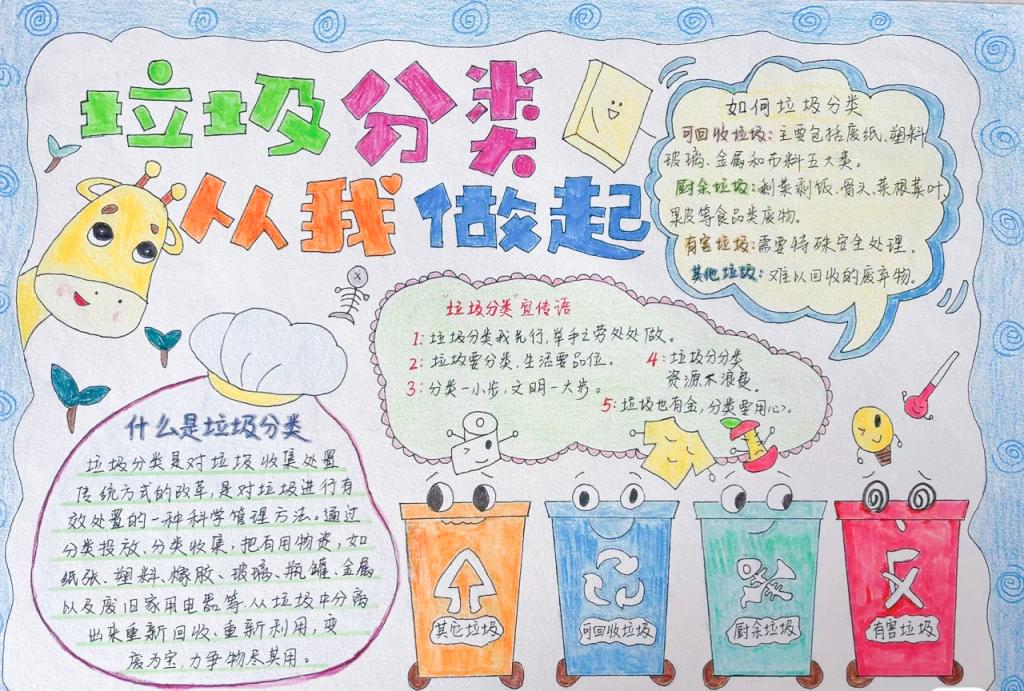 垃圾分类
从我做起
如何垃圾分类
可回收垃圾：主要包括废纸、塑料
玻璃、金属和布料五大类。
厨余垃圾：剩菜剩饭、骨头、菜根菜叶、
果皮等食品类废物。
有害垃圾：需要特殊安全处理。
其他垃圾：难以回收的废弃物。
"垃圾分类"宣传语
1：垃圾分类我先行，举手之劳处处做。
2：垃圾要分类，生活要品位。
3：分类一小步，文明一大步。
4：垃圾分分类
资源不浪费。
5：垃圾也有金，分类要用心。
什么是垃圾分类
垃圾分类是对垃圾收集处置
传统方式的改革，是对垃圾进行有
效处置的一种科学管理方法。通过
分类投放、分类收集，把有用物资，如
纸张、塑料、橡胶、玻璃、瓶罐、金属
以及废旧家用电器等.从垃圾中分离
出来重新回收、重新利用，变
废为宝，力争物尽其用。
其它垃圾
可回收垃圾
厨余垃圾
有害垃圾